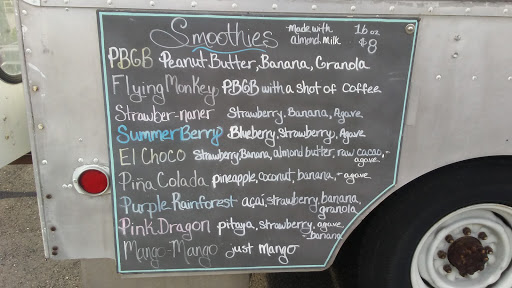 Smoothies made with almond milk 16 oz $8
PBGB Peanut Butter, Banana, Granola
Flying Monkey PBGB with a shot of coffee
Strawber-naner Strawberry, Banana, Agave
Summer Berry Blueberry, Strawberry, Agave
El Choco Strawberry, Banana, almond butter, raw cacao, - agave
Piña Colada pineapple, coconut, banana, - agave
Purple Rainforest açai, strawberry, banana, granola
Pink Dragon pitaya, strawberry, agave - banana
Mango-Mango just Mango